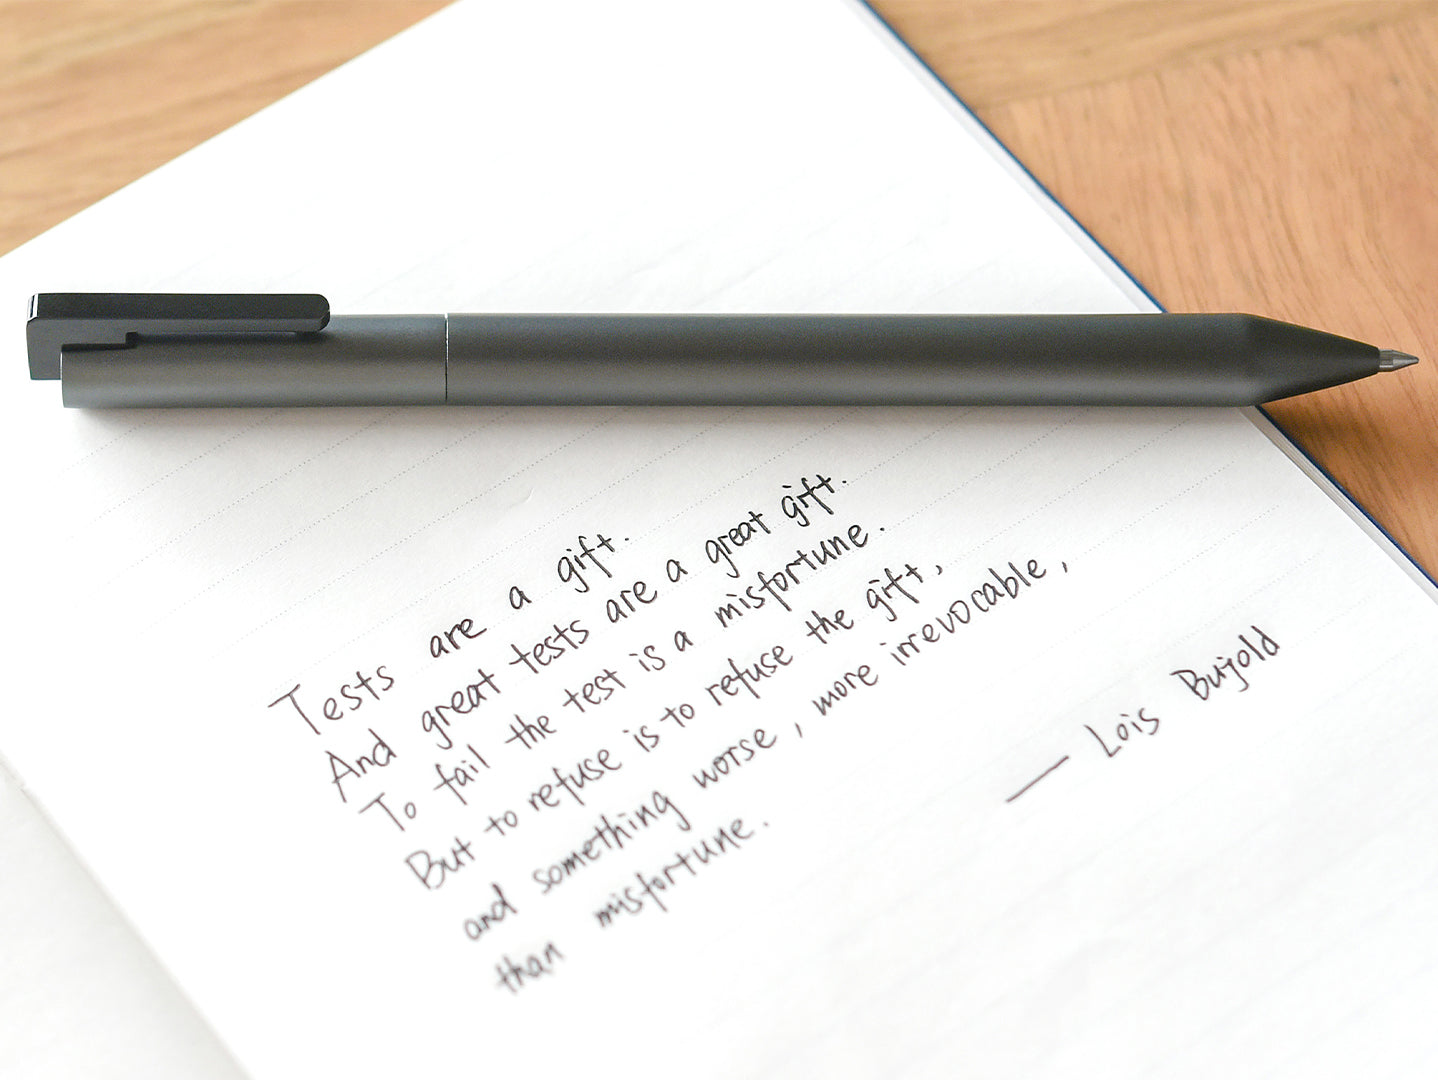 Tests are a gift.
And great tests are a great gift.
To fail the test is a misfortune.
But to refuse is to refuse the gift,
and something worse, more irrevocable,
than misfortune.
— Lois Bujold